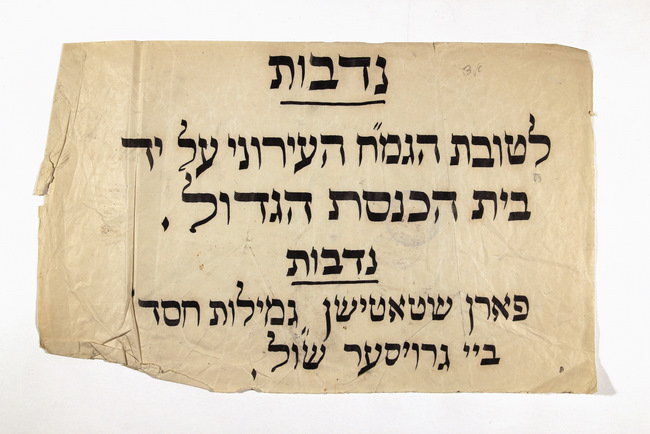 נדבות
לטובת הגמ"ח העירוני על יד
בית הכנסת הגדול.
נדבות
פארן שטאטישן גמילות חסד'
ביי גרויסער שול.